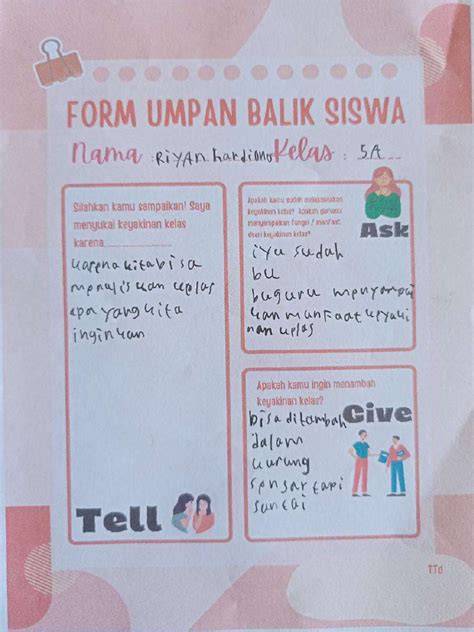 FORM UMPAN BALIK SISWA
Nama : Riyan hardiono Kelas : 5A
Silahkan kamu sampaikan! Saya
menyukai keyakinan kelas
karena
karena kita bisa
menulis kan kelas
apa yang kita
inginkan
Tell
Apakah kamu sudah melaksanakan
keyakinan kelas? Apakah gurumu
menyampaikan fungsi / manfaat
dari keyakinan kelas?
Ask
iya sudah
bu
bu guru menyampai
kan manfaat keyaki
nan kelas
Apakah kamu ingin menambah
keyakinan kelas?
Give
bisa ditambah
dalam
kurung
tapi
santai
TTd